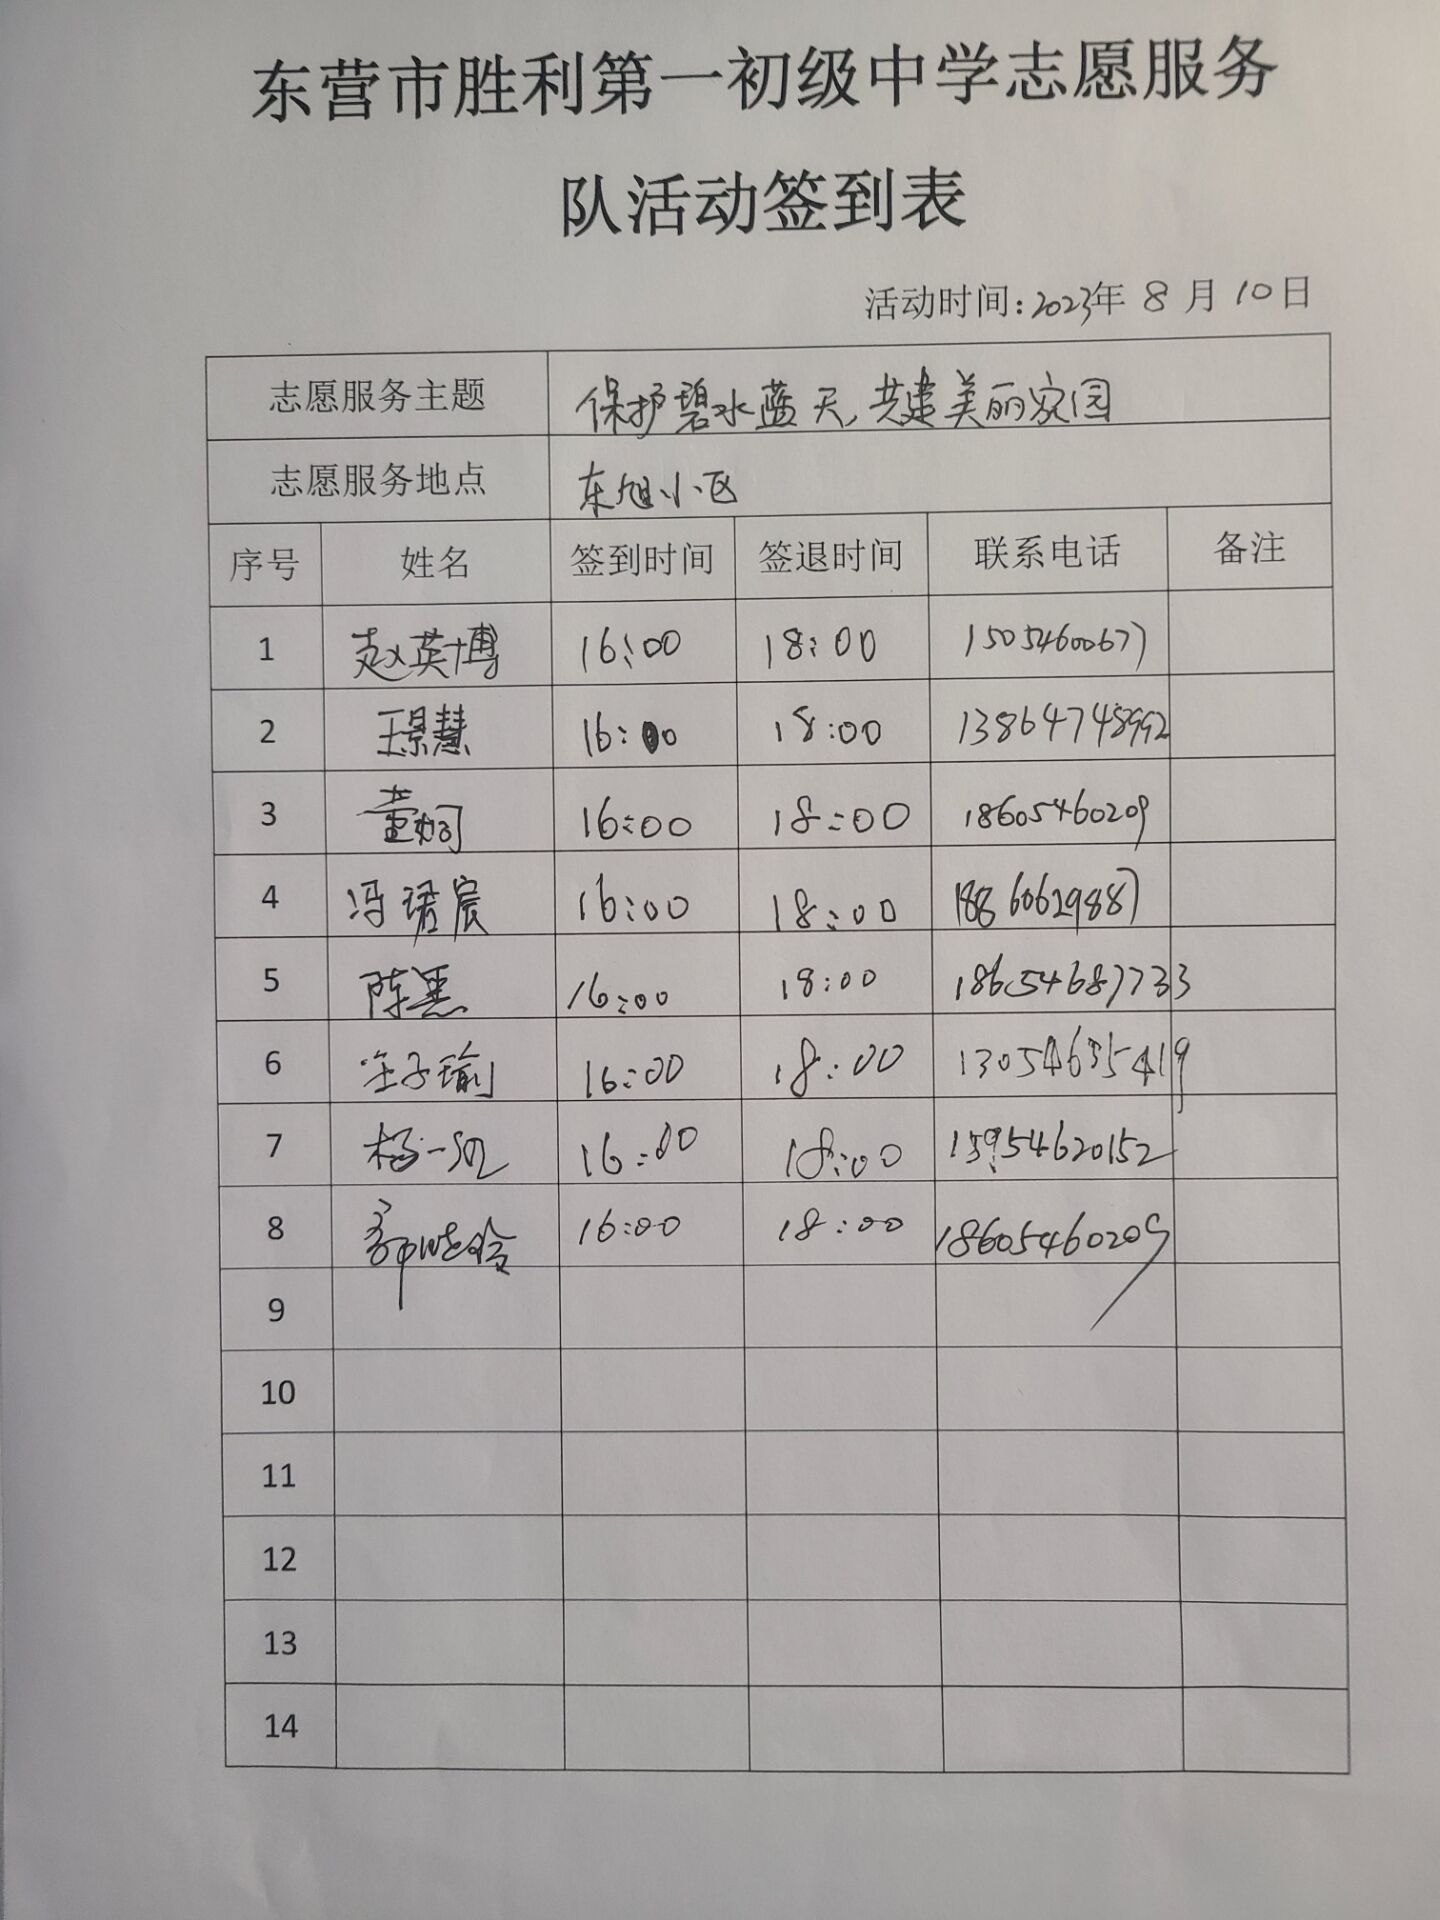 东营市胜利第一初级中学志愿服务
队活动签到表
活动时间:2023年 8 月 10日
志愿服务主题 保护碧水蓝天,共建美丽家园
志愿服务地点 东旭小区
序号 姓名 签到时间 签退时间 联系电话 备注
1 赵英博 16:00 18:00 15054600677
2 王景慧 16:00 18:00 13864748992
3 董炯 16:00 18:00 18605460209
4 冯珺宸 16:00 18:00 18860629887
5 陈 16:00 18:00 18654687733
6 子瑜 16:00 18:00 13054635419
7 杨一凡 16:00 18:00 15954620152
8 郭晓玲 16:00 18:00 18605460209
9
10
11
12
13
14